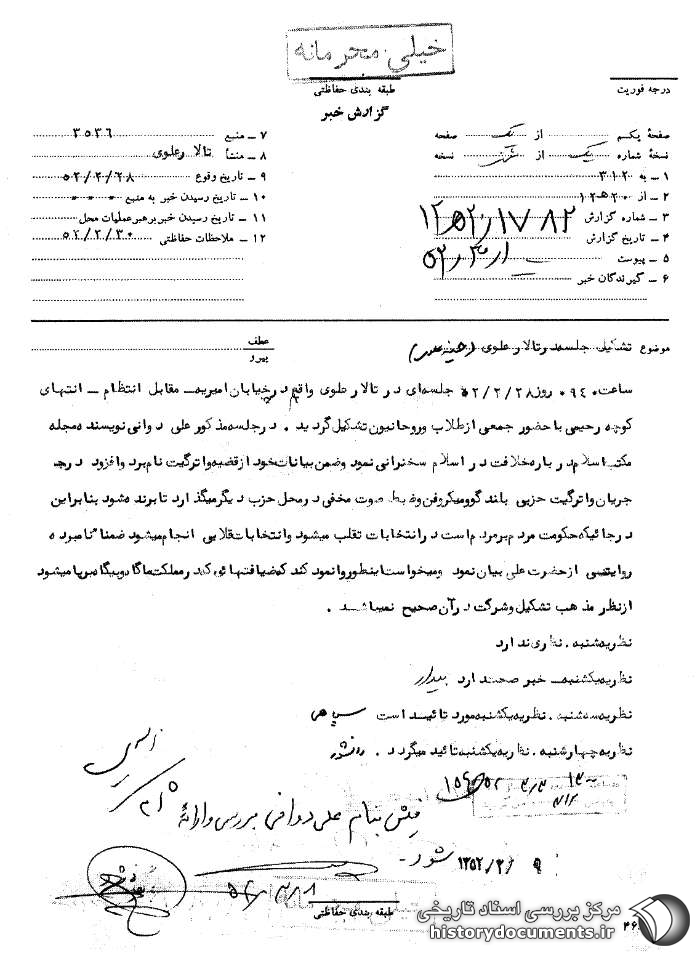 خیلی محرمانه
طبقه بندی حفاظتی
درجه فوریت
گزارش خبر
صفحه یکم از یک صفحه
نسخه شماره یک از نسخه
۱ ـ به ۳۱۲
۲ ـ از ۲۰ هـ ۱۲
۳ ـ شماره گزارش
۴ ـ تاریخ گزارش
۵ ـ پیوست
۶ ـ گیرندگان خبر
۷ ـ منبع ۳۵۳۶
۸ ـ منشأ تالار علوی
۹ ـ تاریخ وقوع ۵۲/۲/۲۸
۱۰ ـ تاریخ رسیدن خبر به منبع
۱۱ ـ تاریخ رسیدن خبر برهبر عملیات محل
۱۲ ـ ملاحظات حفاظتی ۵۲/۲/۳۰
موضوع تشکیل جلسه در تالار علوی
عطف
پیرو
ساعت ۰۹۴۰ روز ۵۲/۲/۲۸ جلسه‌ای در تالار علوی واقع در خیابان امیریه مقابل انتظام ـ انتهای
کوچه رحیمی با حضور جمعی از طلاب و روحانیون تشکیل گردید . در جلسه مذکور علی دوانی نویسنده مجله
مکتب اسلام در باره خلافت در اسلام سخنرانی نمود و ضمن بیانات خود از قضیه واترگیت نام برد و افزود در جـ
جریان واترگیت حزبی بلندگو و میکروفن و ضبط صوت مخفی در محل حزب دیگر میگذارد تا برنده شود بنابراین
در جائیکه حکومت مردم بر مردم است در انتخابات تقلب میشود و انتخابات قلابی انجام میشود ضمنا" نامبرده
روایتی از حضرت علی بیان نمود و میخواست اینطور وانمود کند که ضیافتهائی که در مملکت ما گاه و بیگاه برپا میشود
از نظر مذهب تشکیل و شرکت در آن صحیح نمیباشد .
نظریه شنبه . نظری ندارد
نظریه یکشنبه ـ خبر صحت دارد بیدار
نظریه سه شنبه . نظریه یکشنبه مورد تائید است
نظریه چهارشنبه . نظریه یکشنبه تائید میگردد .
فیش بنام علی دوانی بررسی و ارائه
شود ـ
طبقه بندی حفاظتی
مرکز بررسی اسناد تاریخی
historydocuments.ir